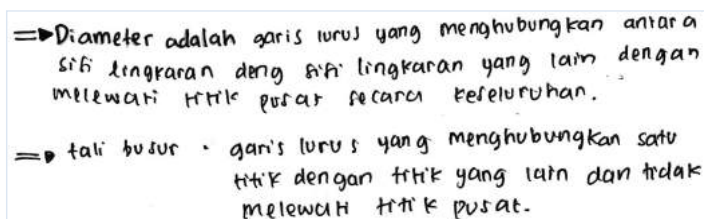 ⇒ Diameter adalah garis lurus yang menghubungkan antara
sisi lingkaran deng sisi lingkaran yang lain dengan
melewati titik pusat secara keseluruhan.
⇒ tali busur. garis lurus yang menghubungkan satu
titik dengan titik yang lain dan tidak
melewati titik pusat.